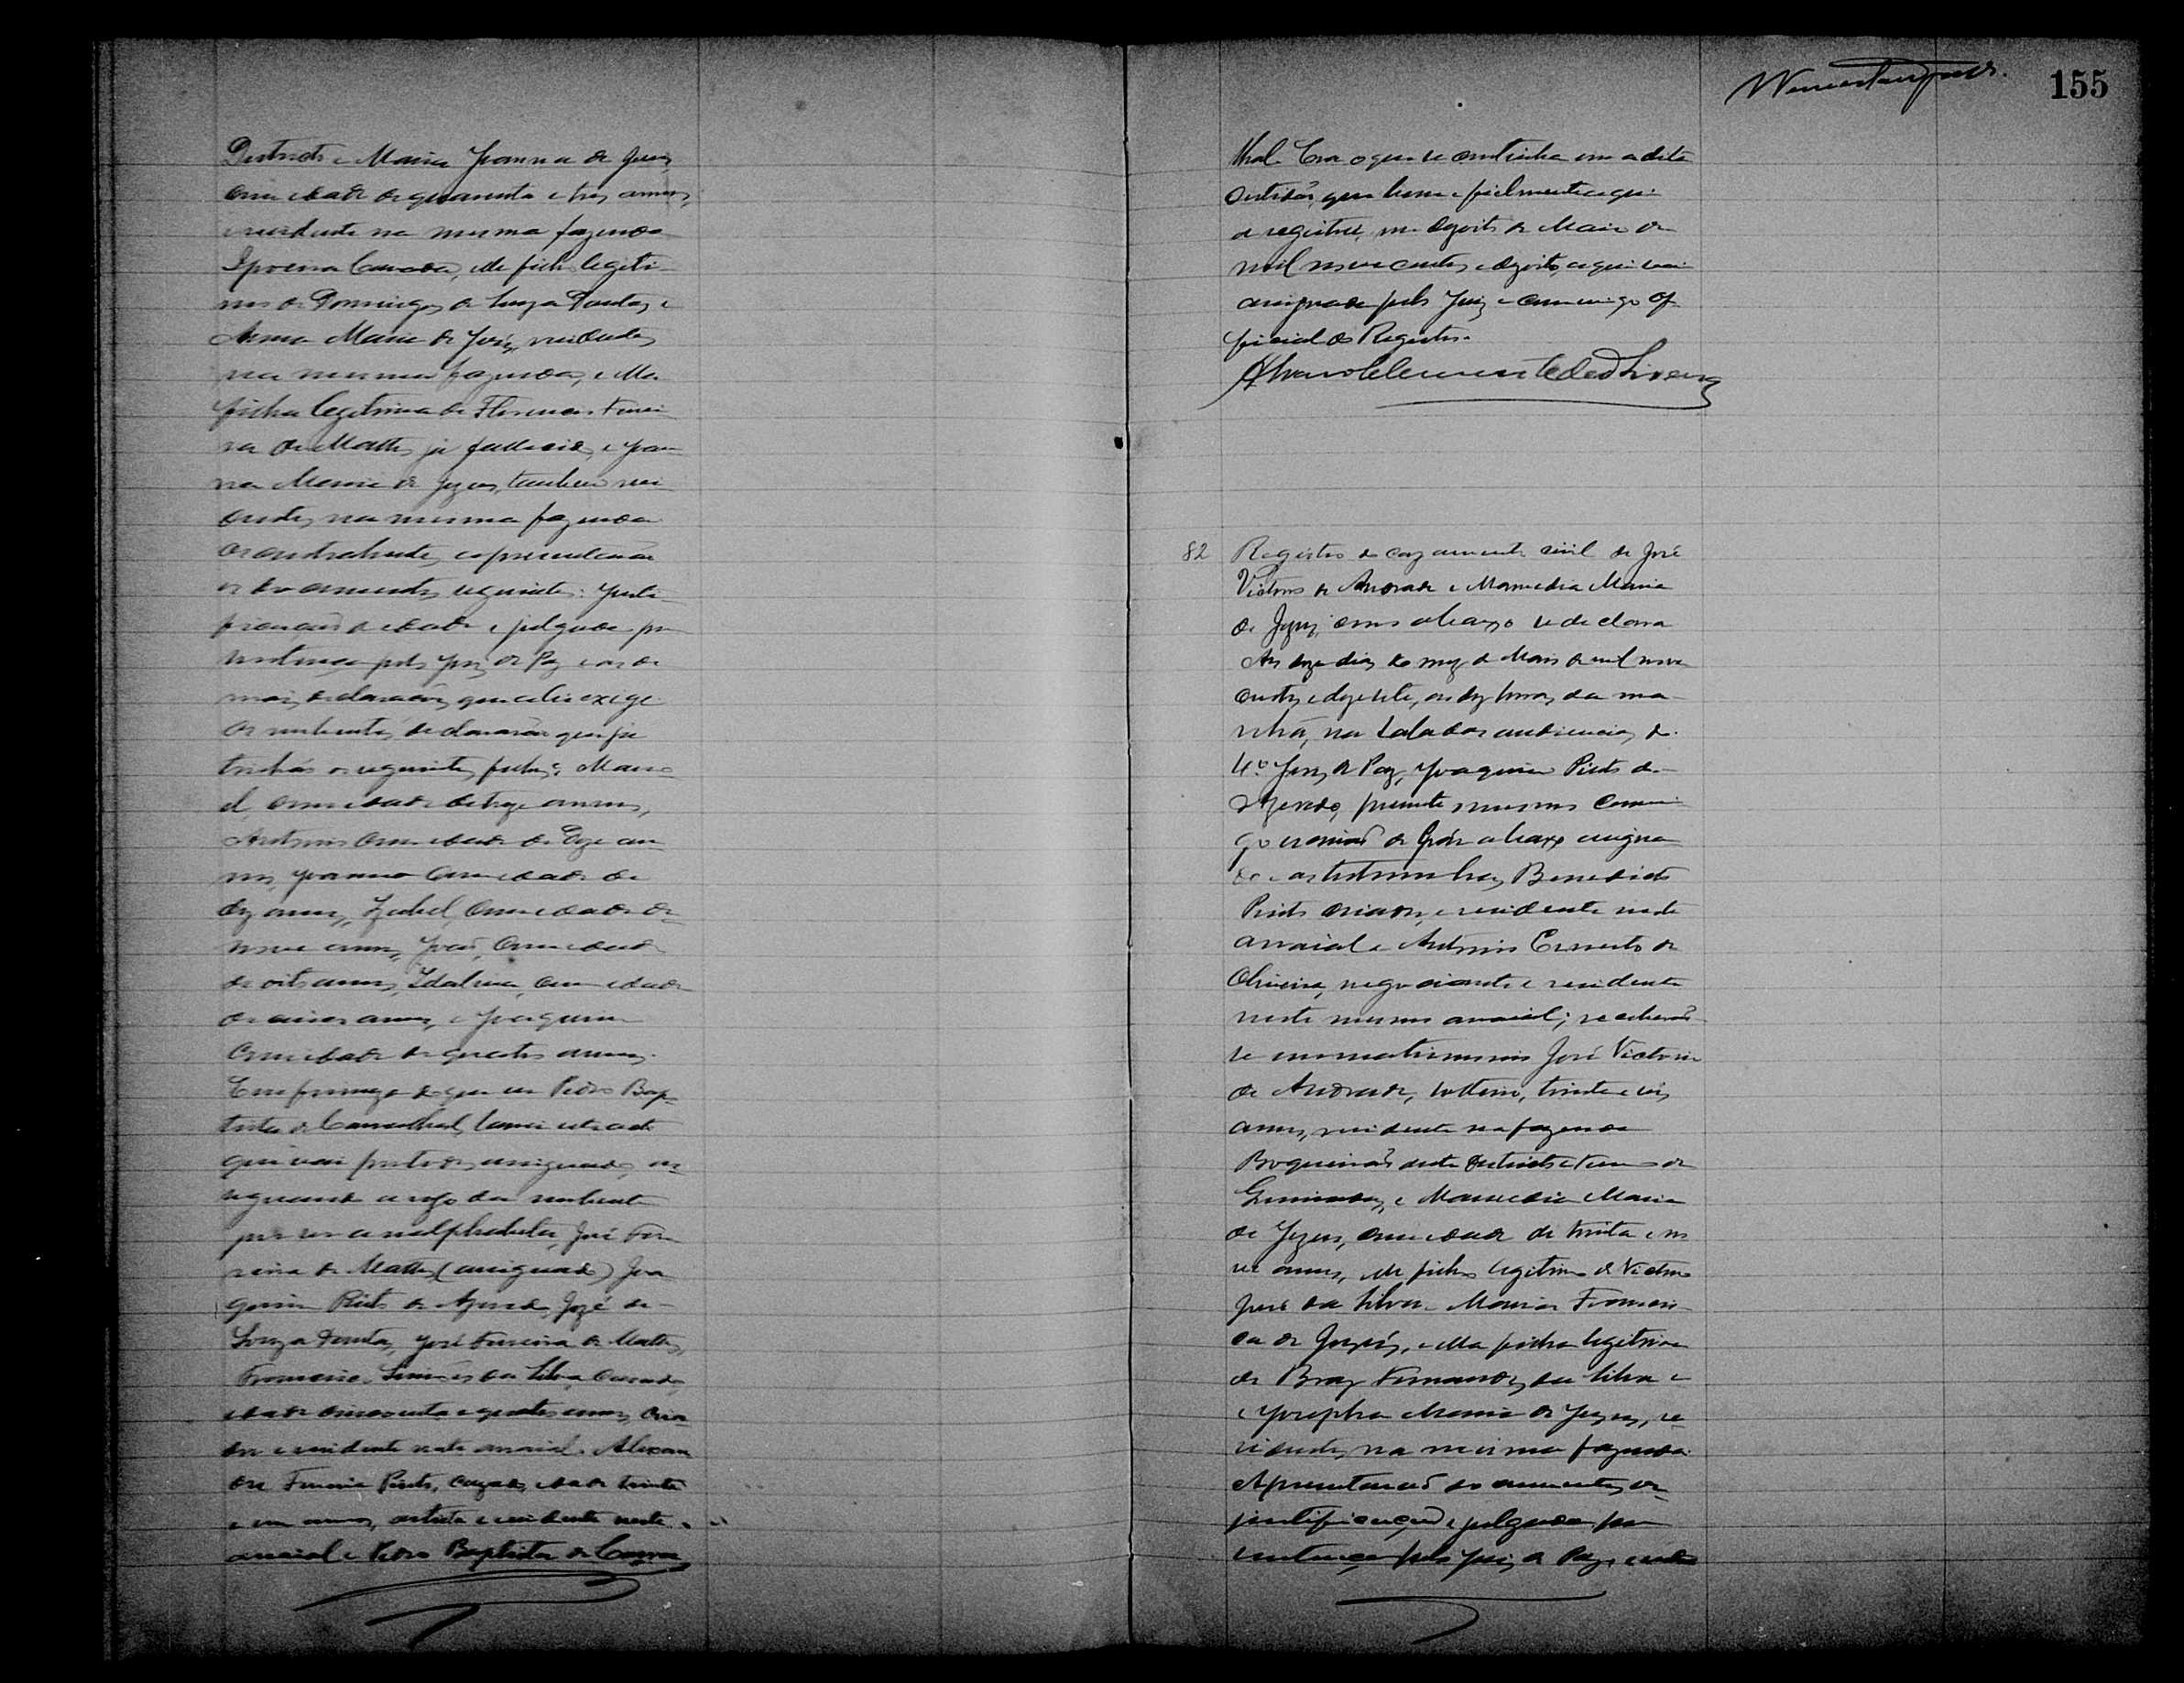 Districto e Maria Joanna de Jesus,
com idade de quarenta e tres annos,
e residente na mesma fazenda
elle filho legiti-
mo de Domingos de Souza Dantas, e
Anna Maria de Jesus, residentes
na mesma fazenda, e ella
filha legitima de Florencio Ferrei-
ra de Mattos já fallecido, e Joan-
na Maria de Jezus, tambem resi-
dentes na mesma fazenda
os contrahentes, apresentarão
os documentos seguintes: justi-
ficação de idade e julgada por
sentença pelo Juiz de Paz e as de-
mais declarações que a lei exige.
Os nubentes, declararão que já
tinhão os seguintes filhos: Mano-
el, com idade de treze annos,
Antonio com idade de doze an-
nos, Joanna com idade de
dez annos, Izabel, com idade de
nove annos, João, com idade
de oito annos, Idalina, com idade
de cinco annos, e Joaquim
com idade de quatro annos.
Em firmeza do que eu Pedro Bap-
tista de Carvalhal, lavrei este acto
que vai por todos assignado, as-
signando a rogo da nubente
por ser analphabeta, José Fer-
reira de Mattos (assignado) Joa-
quim Pinto de Azevedo, José de
Souza Dantas, José Ferreira de Mattos,
Francisco Simões da Silva, casado,
idade cincoenta e quatro annos, cria-
dor e residente neste arraial. Alexan-
dre Ferreira Pinto, cazado, idade trinta
e um annos, artista e residente neste
arraial e Pedro Baptista de Carva-
155
lhal. Era o que se continha em a dita
certidão, que bem e fielmente aqui
a registrei, em dezoito de Maio de
mil novecentos e dezoito, e que vai
assignada pelo Juiz e commigo Of-
ficial do Registro.
82
Registro do cazamento civil de José
Victorio de Andrade e Mamedia Maria
de Jezus, como abaixo se declara
Aos doze dias do mez de Maio de mil nove
centos e dezesete, as dez horas, da ma-
nhã, na sala das audiencias, do
4º Juiz de Paz, Joaquim Pinto de
Azevedo, presente mesmo commi-
go escrivão de Paz abaixo assigna-
do e as testemunhas, Benedicto
Pinto criador, e residente neste
arraial e Antonio Ernesto de
Oliveira, negociante e residente
neste mesmo arraial; receberão-
se em matrimonio José Victorio
de Andrade, solteiro, trinta e seis
annos, residente na fazenda
Boqueirão deste Districto e Termo de
e Mamedia Maria
de Jezus, com idade de trinta e no-
ve annos, elle filho legitimo de Victorio
José da Silva e Maria Francis-
ca de Jesus, e ella filha legitima
de Braz Fernandes da Silva e
e Josepha Maria de Jezus, re-
sidentes, na mesma fazenda.
Apresentarão documentos de
justificação e julgada por
sentença pelo Juiz de Paz,